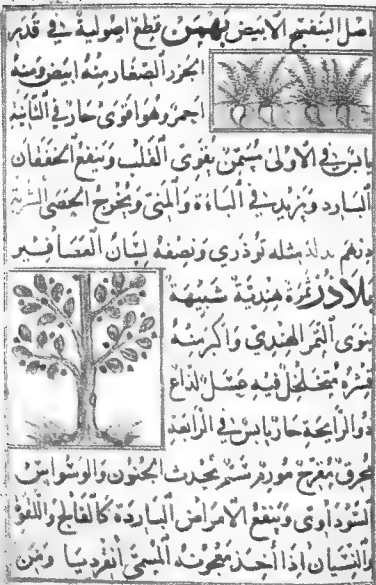 اصل البنفسج الابيض بهمن قطع اصولية في قدر
الجزر الصغار منه ابيض ومنه
احمر وهو اقوى حار في الثانية
يابس في الاولى مسمن يقوي القلب وينفع الخفقان
البارد ويزيد في الباءة والمني ويخرج الحصى الشربة
درهم بدله مثله توذري ونصفه لسان العصافير
بلادر ثمرة هندية شبيهة
بنوى التمر الهندي واكبر منه
قشره متخلخل فيه عسل لذاع
والرايحة حار يابس في الرابعة
محرق مقرح مورم سم يحدث الجنون والوسواس
السوداوي وينفع الامراض الباردة كالفالج واللقوة
والنسيان اذا اخذ معجونه المسمى انقرديا ومن